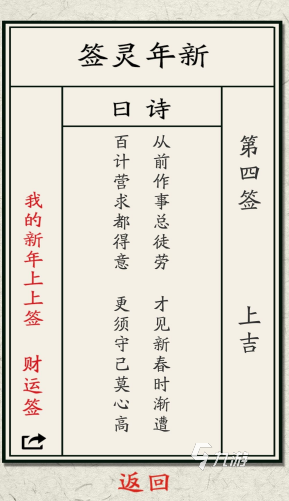 签灵年新
日诗
第四签 上吉
从前作事总徒劳 才见新春时渐遭
百计营求都得意 更须守己莫心高
我的新年上上签 财运签
返回
九游